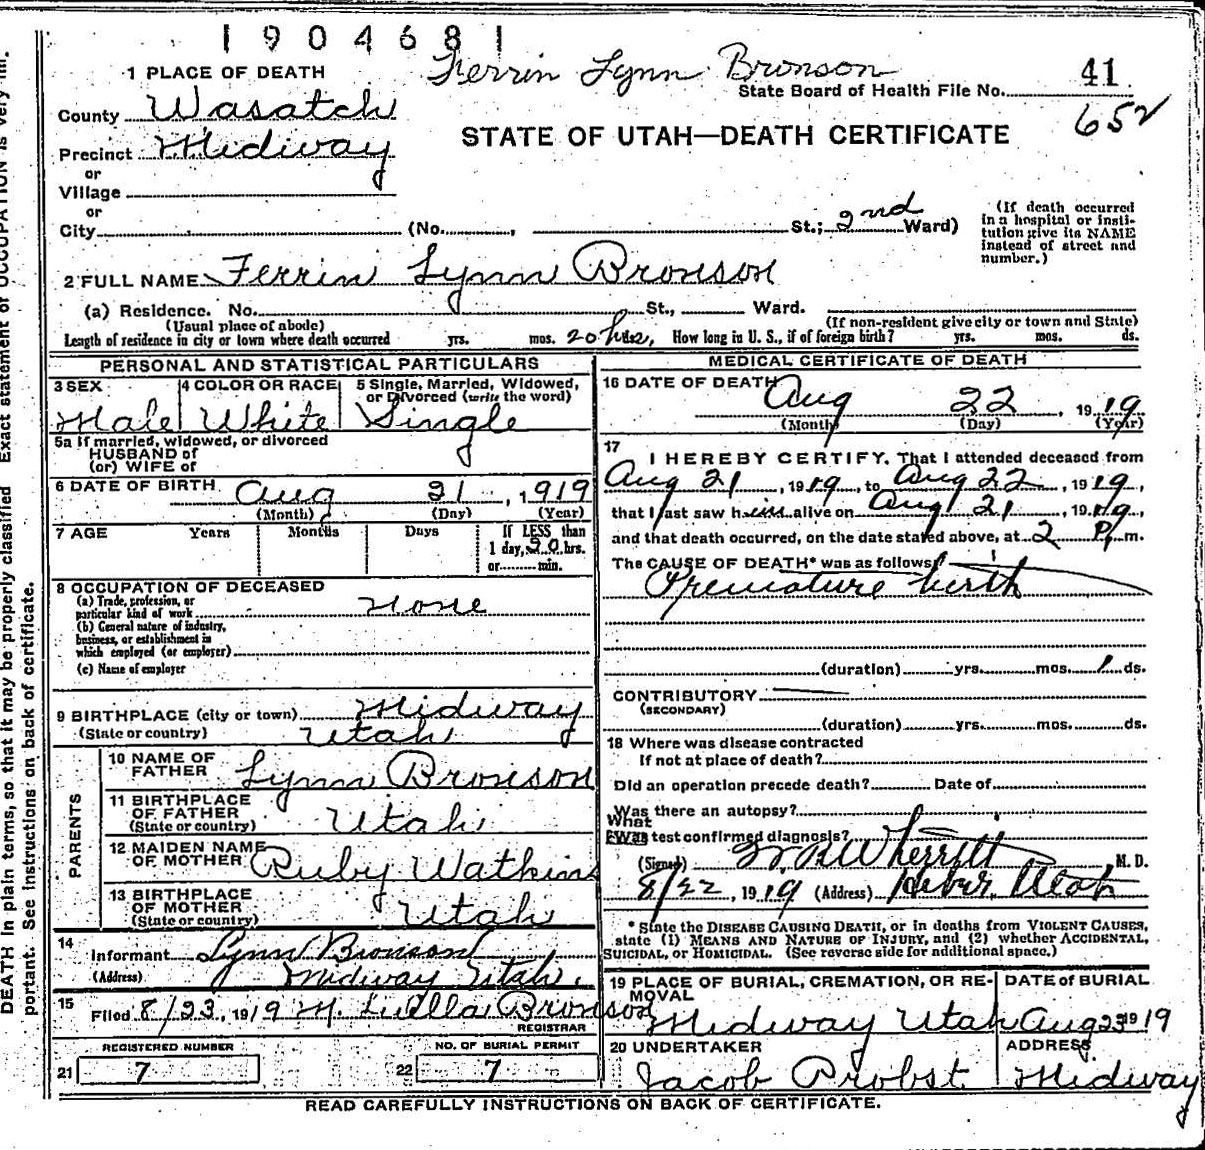 1904681
Ferrin Lynn Bronson
41
State Board of Health File No.
652
1 PLACE OF DEATH
County Wasatch
STATE OF UTAH—DEATH CERTIFICATE
Precinct Midway
or
Village
or
City (No. , St.; 2nd Ward)
(If death occurred
in a hospital or insti-
tution give its NAME
instead of street and
number.)
2 FULL NAME Ferrin Lynn Bronson
(a) Residence. No. St., Ward.
(Usual place of abode) (If non-resident give city or town and State)
Length of residence in city or town where death occurred yrs. mos. 20 hrs, How long in U. S., if of foreign birth? yrs. mos. ds.
PERSONAL AND STATISTICAL PARTICULARS
3 SEX 4 COLOR OR RACE 5 Single, Married, Widowed,
or Divorced (write the word)
Male White Single
5a If married, widowed, or divorced
HUSBAND of
(or) WIFE of
6 DATE OF BIRTH Aug 21, 1919
(Month) (Day) (Year)
7 AGE Years Months Days If LESS than
1 day, 20 hrs.
or min.
8 OCCUPATION OF DECEASED
(a) Trade, profession, or
particular kind of work None
(b) General nature of industry,
business, or establishment in
which employed (or employer)
(c) Name of employer
9 BIRTHPLACE (city or town) Midway
(State or country) Utah
PARENTS
10 NAME OF
FATHER Lynn Bronson
11 BIRTHPLACE
OF FATHER
(State or country) Utah
12 MAIDEN NAME
OF MOTHER Ruby Watkins
13 BIRTHPLACE
OF MOTHER
(State or country) Utah
14
Informant Lynn Bronson
(Address) Midway Utah.
15
Filed 8/23, 1919 M. Luella Bronson
REGISTRAR
REGISTERED NUMBER NO. OF BURIAL PERMIT
21 7 22 7
MEDICAL CERTIFICATE OF DEATH
16 DATE OF DEATH Aug 22, 1919
(Month) (Day) (Year)
17
I HEREBY CERTIFY, That I attended deceased from
Aug 21, 1919, to Aug 22, 1919,
that I last saw him alive on Aug 21, 1919,
and that death occurred, on the date stated above, at 2 P. m.
The CAUSE OF DEATH* was as follows:
Premature birth
(duration) yrs. mos. 1 ds.
CONTRIBUTORY
(SECONDARY)
(duration) yrs. mos. ds.
18 Where was disease contracted
If not at place of death?
Did an operation precede death? Date of
Was there an autopsy?
What
Was test confirmed diagnosis?
(Signed) Wherritt M. D.
8/22, 1919 (Address) Heber, Utah
* State the DISEASE CAUSING DEATH, or in deaths from VIOLENT CAUSES,
state (1) MEANS AND NATURE OF INJURY, and (2) whether ACCIDENTAL,
SUICIDAL, or HOMICIDAL. (See reverse side for additional space.)
19 PLACE OF BURIAL, CREMATION, OR RE-
MOVAL DATE of BURIAL
Midway Utah Aug 23 1919
20 UNDERTAKER ADDRESS
Jacob Probst Midway
READ CAREFULLY INSTRUCTIONS ON BACK OF CERTIFICATE.
DEATH in plain terms, so that it may be properly classified Exact statement of OCCUPATION is very im.
portant. See instructions on back of certificate.